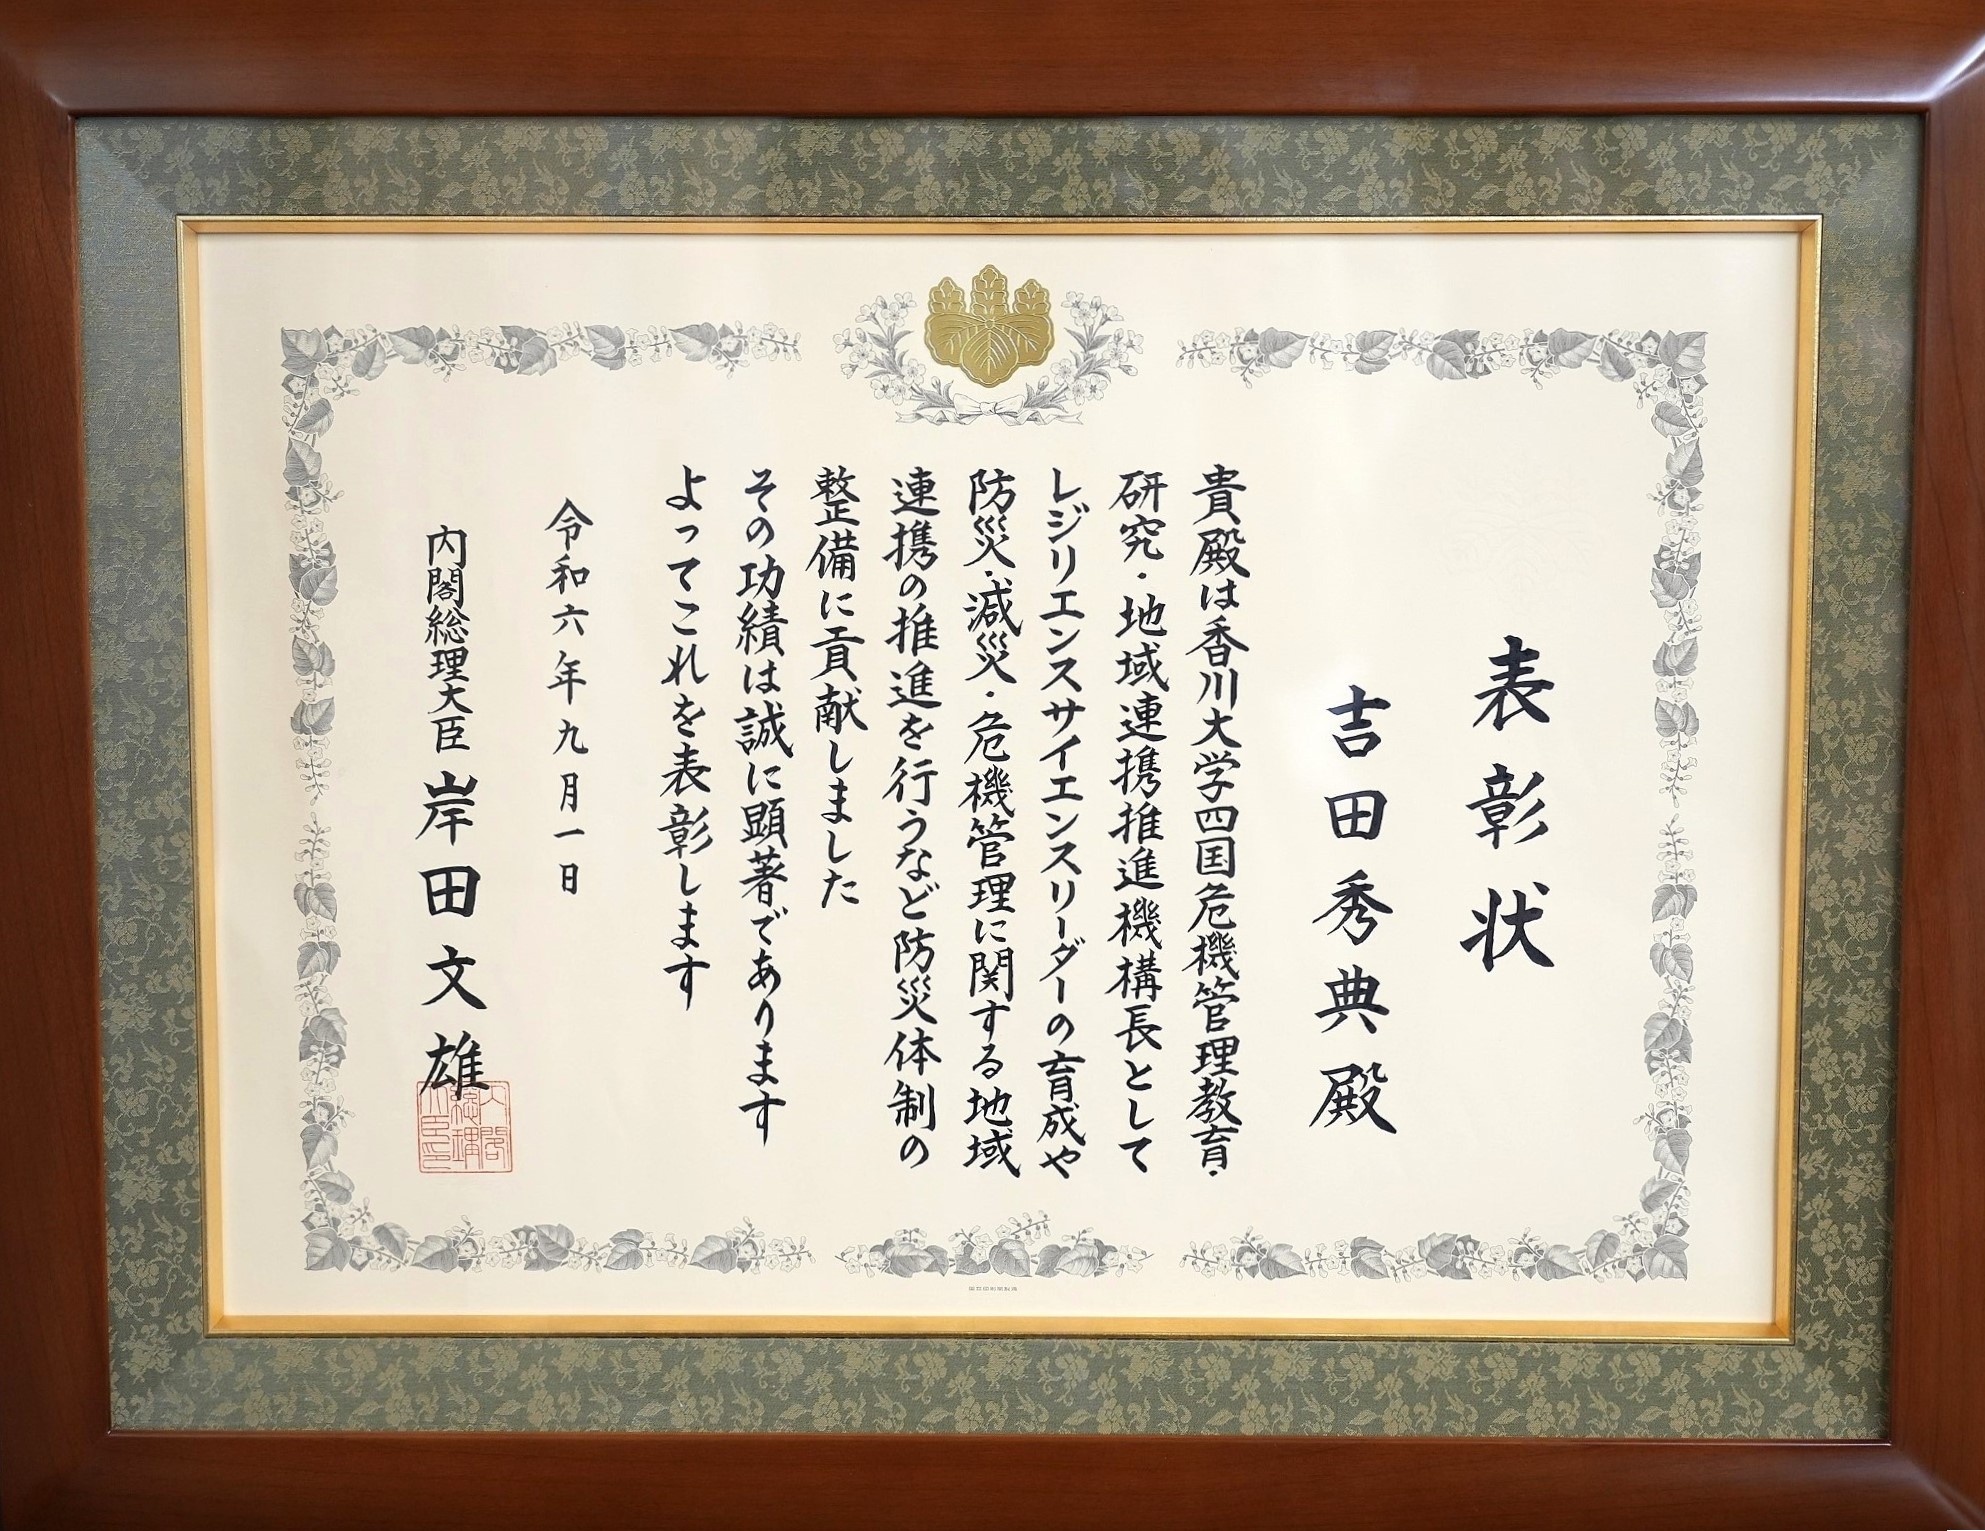 表彰状
吉田秀典殿
貴殿は香川大学四国危機管理教育・
研究・地域連携推進機構長として
レジリエンスサイエンスリーダーの育成や
防災・減災・危機管理に関する地域
連携の推進を行うなど防災体制の
整備に貢献しました
その功績は誠に顕著であります
よってこれを表彰します
令和六年九月一日
内閣総理大臣 岸田文雄
内閣総理大臣印